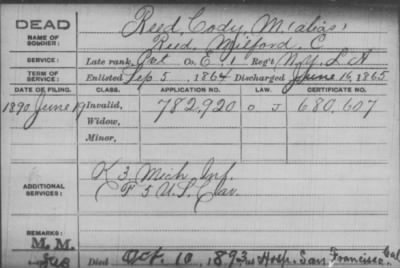 DEAD
Reed, Cody M (alias)
NAME OF SOLDIER:
Reed, Milford. C
SERVICE: Late rank, Pvt Co. E. 1 Reg't N.Y. L. A
TERM OF SERVICE: Enlisted Sep. 5, 1864 Discharged June 19, 1865
DATE OF FILING. CLASS. APPLICATION NO. LAW. CERTIFICATE NO.
1890 June 19 Invalid, 782,920 O J 680,607
Widow,
Minor,
ADDITIONAL SERVICES:
K 3, Mich Inf.
F 5 U.S. Cav.
REMARKS:
M. M.
Died Oct. 10, 1893 at Hosp. San Francisco Cal